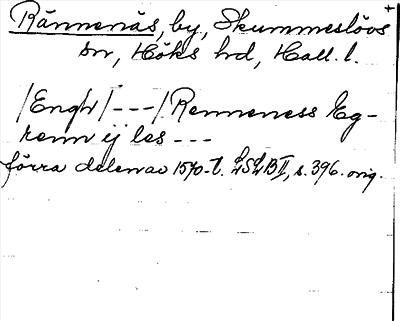 Rännenäs, by, Skummeslövs
sn, Höks hd, Hall. l.
/Engh/ --- / Renneness Eg-
renn ij les ---
förra delen av 1570-t. LSLB II, s. 396. orig.